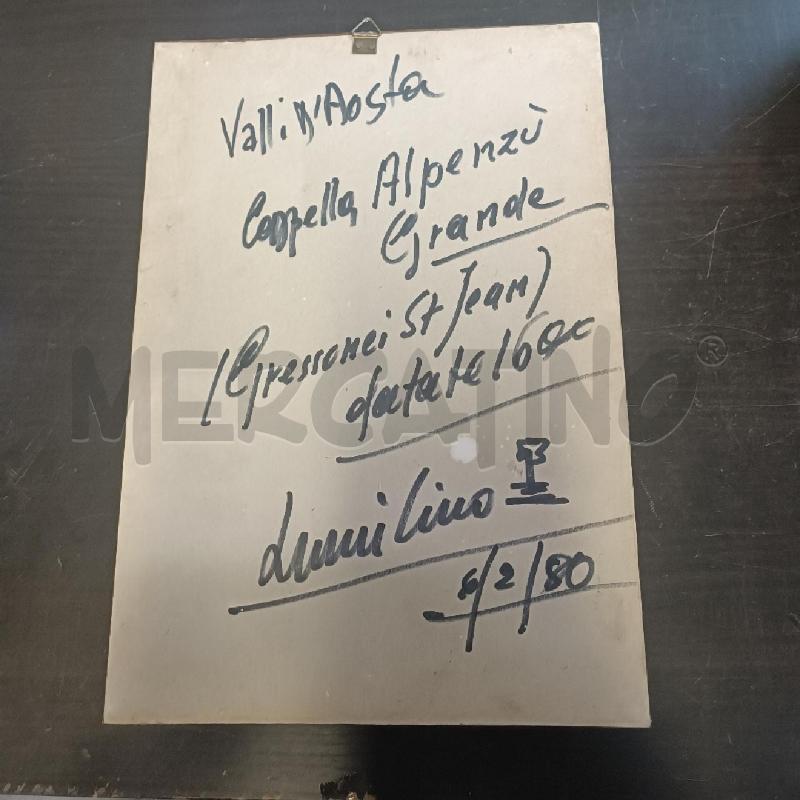 Valli D'Aosta
Cappella Alpenzù
Grande
(Gressonei St Jean)
datate 16
Lino
6/2/80
MERCATINO®